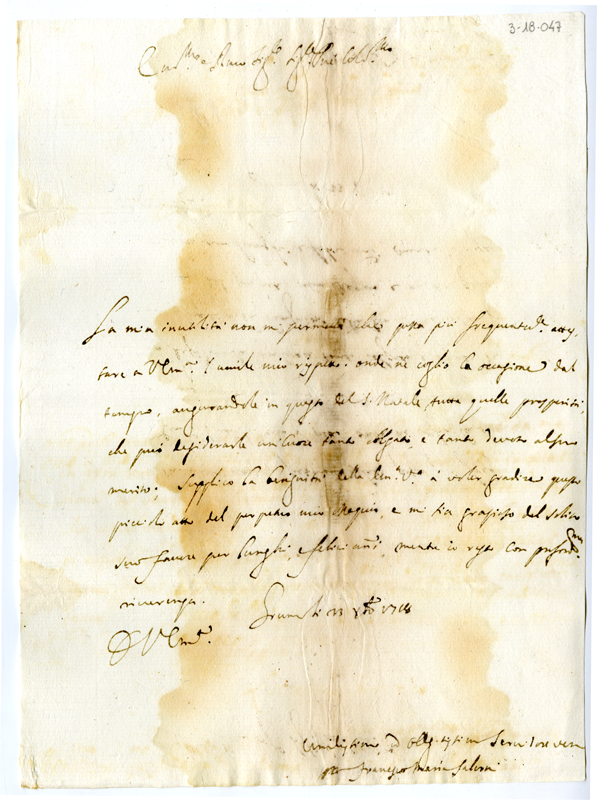 3-18-047
Em.mo e Rmo Sig.r Sig.r Pne Col.mo
La mia inutilità non mi permette che possa più frequentem.te attes,
tare a V. Em.za l'umile mio rispetto. onde ne coglio la occasione dal
tempo, augurandole in questo del S. Natale tutte quelle prosperità,
che può desiderarle un Cuore tanto obligato, e tanto devoto al suo
merito; Supplico la benignità della Em.za V.a à voler gradire questo
picciolo atto del perpetuo mio ossequio, e mi sia grazioso del solito
suo favore per lunghi, e felici anni, mentre io resto con profond.ma
riverenza.
li 23 Xbre 1718
D V. Em.za
Umilissimo, ed obbligatissimo Servitore vero
Francesco Maria Salvini